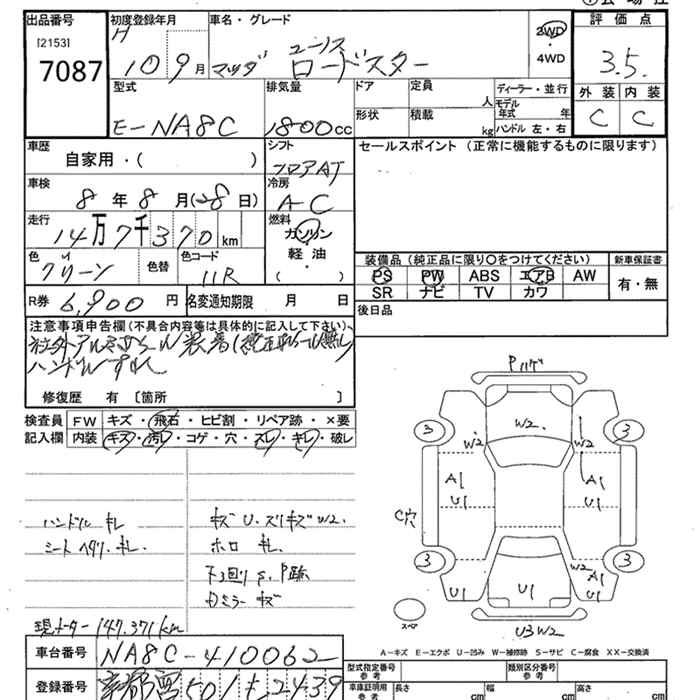 出品番号
[2153]
7087
初度登録年月
H
10 9月
車名・グレード
ユーノス
マツダ ロードスター
2WD
・
4WD
評価点
3.5.
外装 内装
C C
型式
E-NA8C
排気量
1800cc
ドア
形状
定員
人
積載
kg
ディーラー・並行
モデル年式 年
ハンドル 左・右
車歴
自家用・( )
シフト
フロアAT
セールスポイント (正常に機能するものに限ります)
車検
8年8月(28日)
冷房
A-C
走行
14万7千370km
燃料
ガソリン
・
軽油
( )
色
グリーン
色替
色コード
11R
装備品 (純正品に限り○をつけてください)
PS PW ABS エアB AW
SR ナビ TV カワ
新車保証書
有・無
R券 6,900円
名変通知期限 月 日
後日品
注意事項申告欄(不具合内容等は具体的に記入して下さい)
社外アルミホイール装着(純正ホイール無し)
ハンドルすれ
修復歴 有 〔箇所 〕
検査員記入欄
FW キズ・飛石・ヒビ割・リペア跡・×要
内装 キズ・汚レ・コゲ・穴・スレ・キレ・破レ
ハンドル キレ
シート ヘタリ・キレ.
キズ U.スリキズ W2.
ホロ キレ.
下回り S.P跡
Rミラー キズ
現メーター 147.371km
車台番号 NA8C-410062
登録番号
Pハゲ
W2
3
3
W2
A1
U1
A1
U1
C穴
3
3
W2
A1
U1
U1
U1
スペア
U3W2
A-キズ E-エクボ U-凹み W-補修跡 S-サビ C-腐食 XX-交換済
型式指定番号
参考
類別区分番号
参考
車庫証明用
参考
長さ cm
幅 cm
高さ cm